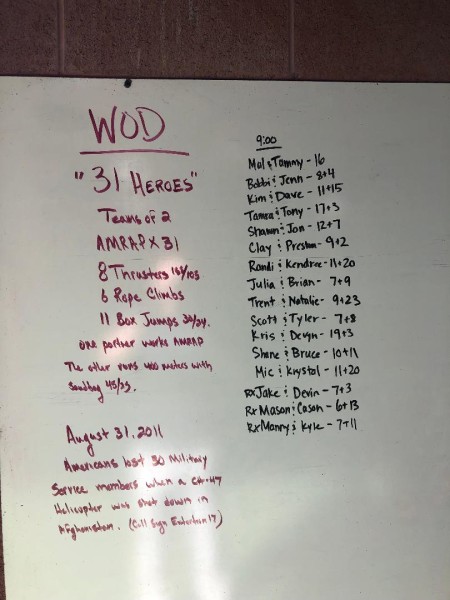 WOD
"31 HEROES"
Teams of 2
AMRAP X 31
8 Thrusters 155/105
6 Rope Climbs
11 Box Jumps 30/24.
one partner works AMRAP
The other runs 400 meters with
Sandbag 45/25.
August 31, 2011
Americans lost 30 Military
Service members when a CH-47
Helicopter was shot down in
Afghanistan. (Call Sign Extortion 17)
9:00
Mal & Tammy - 16
Bobbi & Jenn - 8+4
Kim & Dave - 11+15
Tamra & Tony - 17+3
Shawn & Jon - 12+7
Clay & Preston - 9+2
Randi & Kendree - 11+20
Julia & Brian - 7+9
Trent & Natalie - 9+23
Scott & Tyler - 7+8
Kris & Devyn - 19+3
Shane & Bruce - 10+11
Mic & Krystal - 11+20
RX Jake & Devin - 7+3
RX Mason & Cason - 6+13
RX Manny & Kyle - 7+11